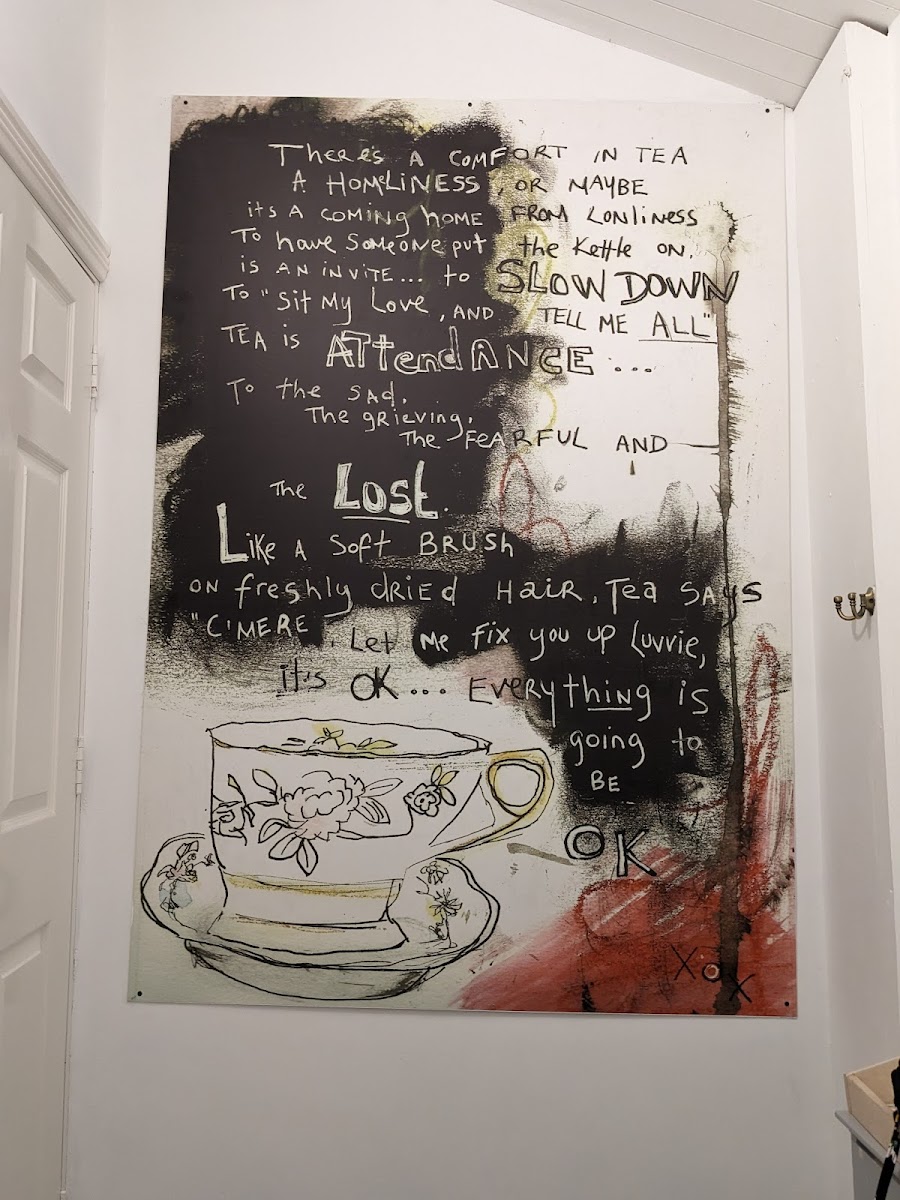 There's A COMFORT IN TEA
A HOMELINESS, OR MAYBE
its A COMING hOME FROM LONLINESS
To have SomeONE put the Kettle ON.
is AN INVITE... to SLOW DOWN
To "Sit My Love, AND TELL ME ALL"
TEA is ATTendANCE ...
To the SAd.
The gRieving.
The FeARFUL AND
The LOSt.
Like A Soft BRUSh
ON freshly dRIED HaiR, Tea SAyS
"C'MERE, Let Me fix you up Luvvie,
it's OK... EveRything is
going to
BE
OK
XOX